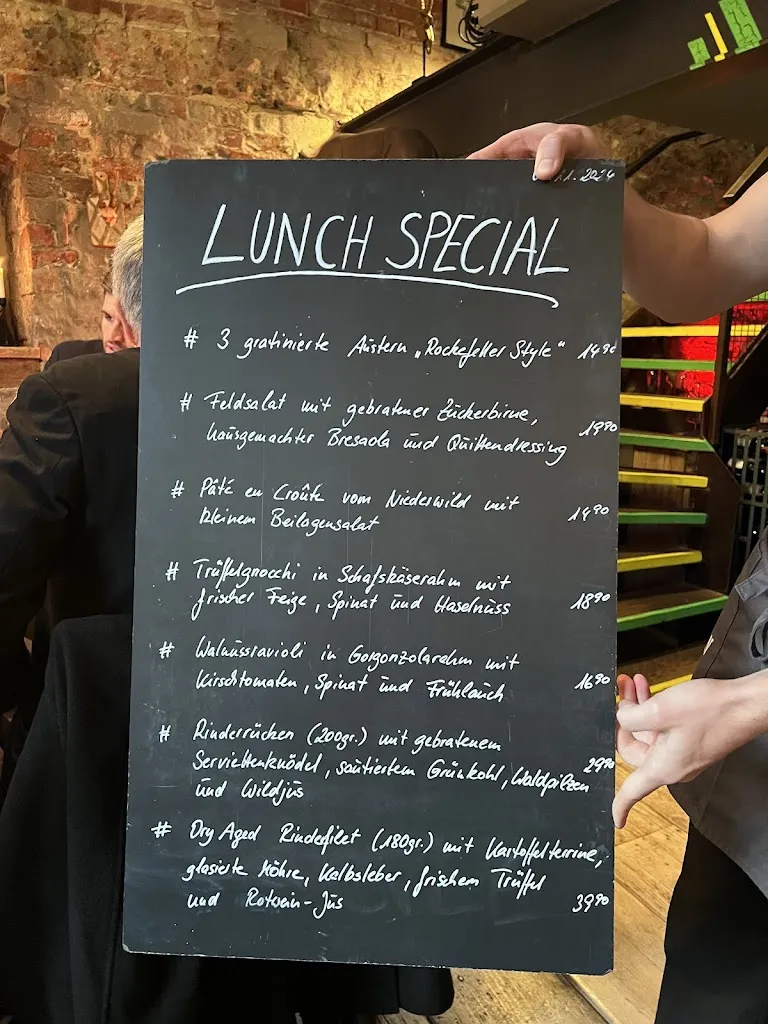 .11.2024
LUNCH SPECIAL
# 3 gratinierte Austern „Rockefeller Style" 14⁹⁰
# Feldsalat mit gebratener Zuckerbirne,
hausgemachter Bresaola und Quittendressing 19⁹⁰
# Pâté en Croûte vom Niederwild mit
kleinem Beilagensalat 14⁹⁰
# Trüffelgnocchi in Schafskäserahm mit
frischer Feige, Spinat und Haselnuss 18⁹⁰
# Walnussravioli in Gorgonzolarahm mit
Kirschtomaten, Spinat und Frühlauch 16⁹⁰
# Rinderrücken (200gr.) mit gebratenem
Serviettenknödel, sautiertem Grünkohl, Waldpilzen 29⁹⁰
und Wildjus
# Dry Aged Rinderfilet (180gr.) mit Kartoffelterrine,
glasierte Möhre, Kalbsleber, frischem Trüffel
und Rotwein-Jus 39⁹⁰